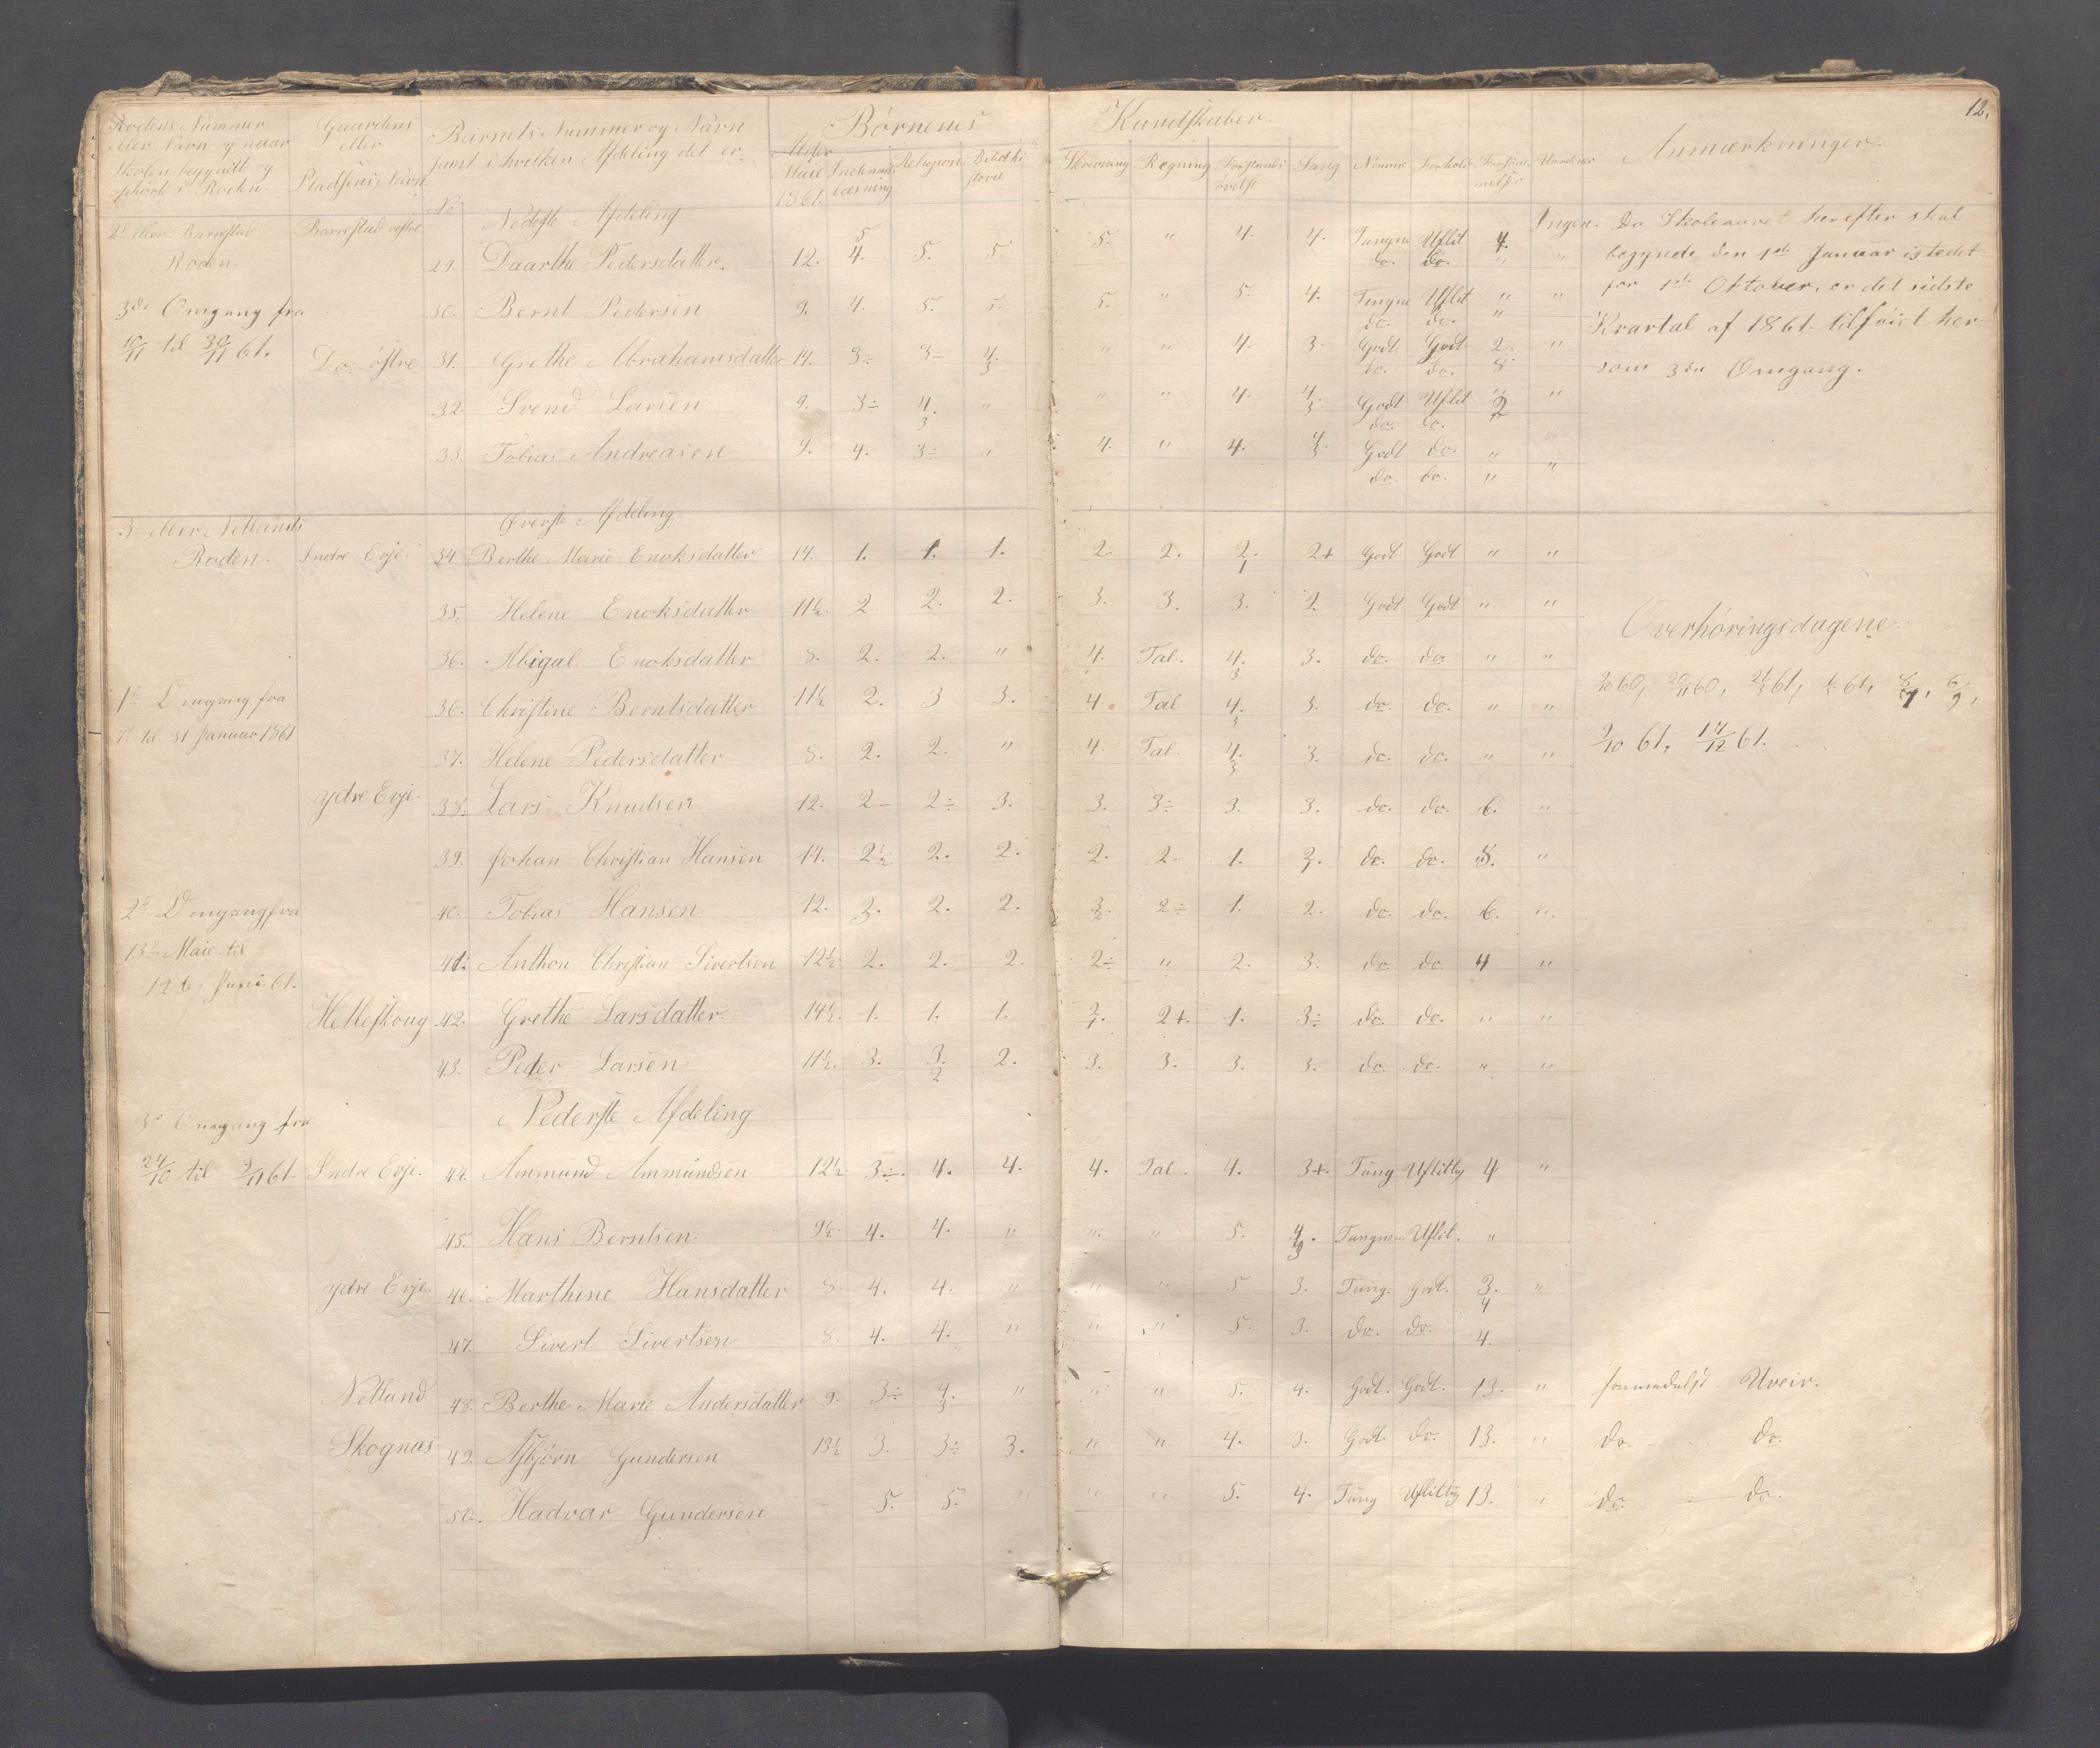 12.
Rodens Nummer eller Navn og naar Skolen begyndt og ophørt i Roden. Gaardens eller Pladsens Navn Barnets Nummer og Navn samt i hvilken Afdeling det er. Børnenes Kundskaber. Anmærkninger.
No Alder Maie 1861. Indenadslæsning Religion Bibelhistorie Skrivning Regning Forstandsøvelse Sang Nemme Forhold Forsømmelser Uordener
Nederste Afdeling
2 eller Barrestad Roden. Barrestad vestre 29. Daarthe Pedersdatter. 12. 5 4. 5. 5. 5. " 4. 4. Tungne Uflit 4. Ingen.
do. do. " "
Da Skoleaaret herefter skal
begynde den 1ste Januar istedet
for 1ste Oktober, er det sidste
Kvartal af 1861 tilføiet her
som 3die Omgang.
3de Omgang fra 30. Bernt Pedersen 9. 4. 5. 5. 5. " 5. 4. Tungne Uflit " "
do. do. "
10/11 til 30/11 61. Do østre 31. Grethe Abrahamsdatter 14. 3÷ 3÷ 4/3 " " 4. 3. Godt Godt 2. "
do. do. 8
32. Svend Larsen 9. 3÷ 4/3 " " " 4. 4/3. Godt Uflit 3 "
do. do. 2
33. Tobias Andreasen 9. 4. 3÷ " 4. " 4. 4/3. Godt do. "
do. do. " "
Øverste Afdeling.
3 eller Netlands Roden. Indre Evje. 34 Berthe Marie Enoksdatter 14. 1. 1. 1. 2. 2. 2/1 2+ Godt Godt " "
35. Helene Enoksdatter 11½. 2 2. 2. 3. 3. 3. 2 Godt Godt " "
Overhøringsdagene.
36. Abigal Enoksdatter 8. 2. 2. " 4. Tal. 4/3 3. do. do. " "
20/11 60,
1ste Omgang fra 36. Christine Berntsdatter 11½ 2. 3 3. 4. Tal 4/3 3. do. do. " "
til 31 Januar 1861 37. Helene Pedersdatter 8. 2. 2. " 4. Tal. 4/3 3. do. do. " "
9/10 61, 14/12 61.
ydre Evje. 38. Lars Knudsen 12. 2– 2÷ 3. 3. 3÷ 3. 3. do. do. 6. "
39. Johan Christian Hansen 14. 2½ 2. 2. 2. 2. 1. 2. do. do. 8. "
2den Omgang fra 40. Tobias Hansen 12. 2. 2. 2. 3/2. 2÷ 1. 2. do. do. 6. "
13de Maie til
41. Anthon Christian Sivertsen 12½ 2. 2. 2. 2÷ " 2. 3. do. do. 4 "
12te Juni 61.
Helleskoug 42. Grethe Larsdatter. 14½. 1. 1. 1. 2/1. 2+. 1. 3÷ do. do. " "
43. Peder Larsen 11½. 3. 3/2 2. 3. 3. 3. 3. do. do. " "
Nederste Afdeling
3de Omgang fra
24/10 til 9/11 61. Indre Evje. 44. Ammund Ammundsen 12½. 3÷. 4. 4. 4. Tal. 4. 3+. Tung Uflittig 4 "
45. Hans Berntsen 9½. 4. 4. " " " 5. 4/3. Tungnem Uflit. "
ydre Evje. 46. Marthine Hansdatter 8. 4. 4. " " " 5 3. Tung. Godt. 3/4 "
47. Sivert Sivertsen 8. 4. 4. " " " 5. 3. do. do. 4.
Netland 48. Berthe Marie Andersdatter 9. 3÷ 4/3. " " " 5. 4. Godt. Godt. 13. " formedelst Uveir.
Skognæs 49. Asbjørn Gundersen 13½ 3. 3÷ 3. " " 4. 3. Godt. do. 13. " do. do.
50. Hadvar Gundersen 5. 5. " " " 5. 4. Tung Uflittig 13. " do. do.